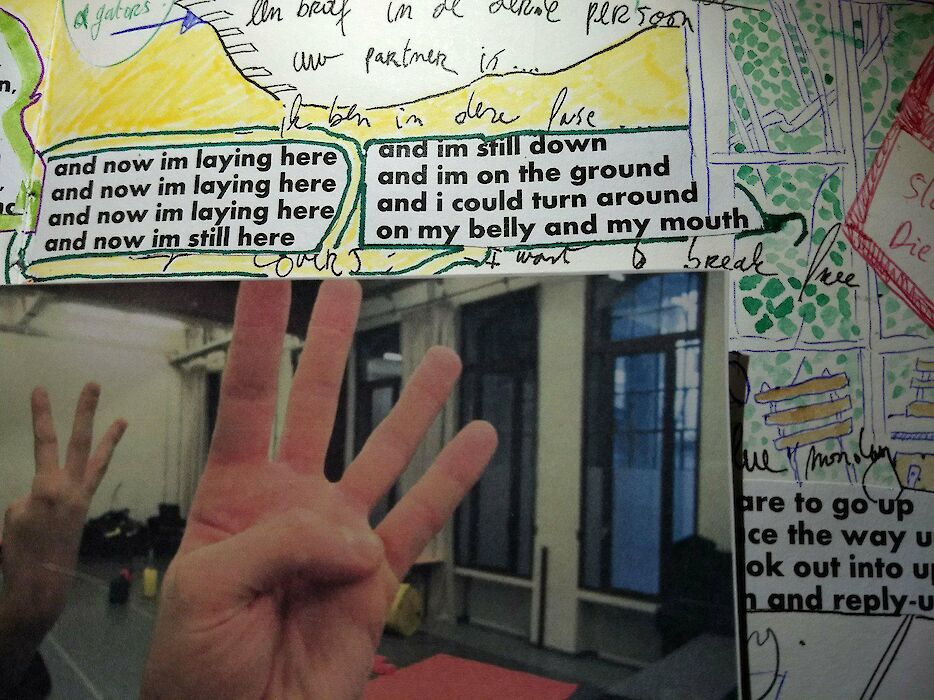 gators
een brief in de derde persoon
uw partner is ...
ik ben in deze fase ...
and now im laying here
and now im laying here
and now im laying here
and now im still here
and im still down
and im on the ground
and i could turn around
on my belly and my mouth
covers:
I want to break free
Die
are to go up
ce the way u
ok out into up
n and reply-u